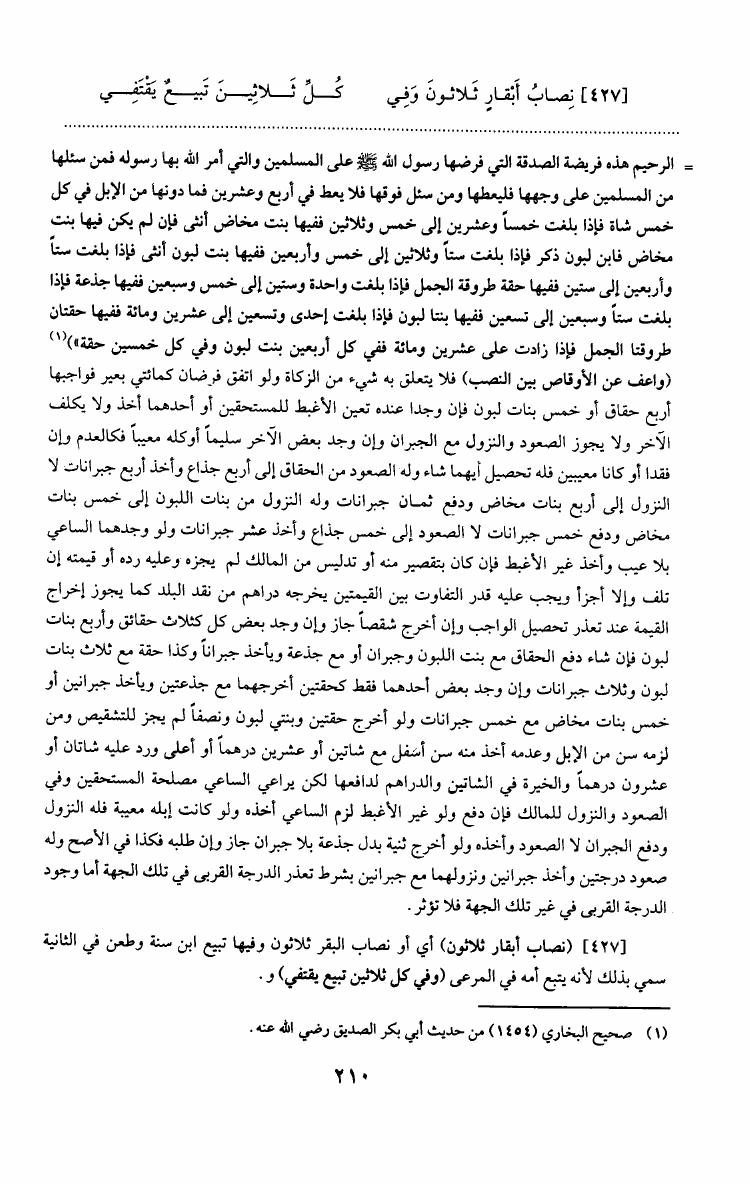 [٤٢٧] نِصابُ أَبْقارٍ ثَلاثونَ وَفِي كُـلِّ ثَـلاثِيـنَ تَبيـعٌ يَقْتَفِـي
= الرحيم هذه فريضة الصدقة التي فرضها رسول الله ﷺ على المسلمين والتي أمر الله بها رسوله فمن سئلها
من المسلمين على وجهها فليعطها ومن سئل فوقها فلا يعط في أربع وعشرين فما دونها من الإبل في كل
خمس شاة فإذا بلغت خمساً وعشرين إلى خمس وثلاثين ففيها بنت مخاض أنثى فإن لم يكن فيها بنت
مخاض فابن لبون ذكر فإذا بلغت ستاً وثلاثين إلى خمس وأربعين ففيها بنت لبون أنثى فإذا بلغت ستاً
وأربعين إلى ستين ففيها حقة طروقة الجمل فإذا بلغت واحدة وستين إلى خمس وسبعين ففيها جذعة فإذا
بلغت ستاً وسبعين إلى تسعين ففيها بنتا لبون فإذا بلغت إحدى وتسعين إلى عشرين ومائة ففيها حقتان
طروقتا الجمل فإذا زادت على عشرين ومائة ففي كل أربعين بنت لبون وفي كل خمسين حقة»)(١)
(واعف عن الأوقاص بين النصب) فلا يتعلق به شيء من الزكاة ولو اتفق فرضان كمائتي بعير فواجبها
أربع حقاق أو خمس بنات لبون فإن وجدا عنده تعين الأغبط للمستحقين أو أحدهما أخذ ولا يكلف
الآخر ولا يجوز الصعود والنزول مع الجبران وإن وجد بعض الآخر سليماً أوكله معيباً فكالعدم وإن
فقدا أو كانا معيبين فله تحصيل أيهما شاء وله الصعود من الحقاق إلى أربع جذاع وأخذ أربع جبرانات لا
النزول إلى أربع بنات مخاض ودفع ثمـان جبرانات وله النزول من بنات اللبون إلى خمس بنات
مخاض ودفع خمس جبرانات لا الصعود إلى خمس جذاع وأخذ عشر جبرانات ولو وجدهما الساعي
بلا عيب وأخذ غير الأغبط فإن كان بتقصير منه أو تدليس من المالك لم يجزه وعليه رده أو قيمته إن
تلف وإلا أجزأ ويجب عليه قدر التفاوت بين القيمتين يخرجه دراهم من نقد البلد كما يجوز إخراج
القيمة عند تعذر تحصيل الواجب وإن أخرج شقصاً جاز وإن وجد بعض كل كثلاث حقائق وأربع بنات
لبون فإن شاء دفع الحقاق مع بنت اللبون وجبران أو مع جذعة ويأخذ جبراناً وكذا حقة مع ثلاث بنات
لبون وثلاث جبرانات وإن وجد بعض أحدهما فقط كحقتين أخرجهما مع جذعتين ويأخذ جبرانين أو
خمس بنات مخاض مع خمس جبرانات ولو أخرج حقتين وبنتي لبون ونصفاً لم يجز للتشقيص ومن
لزمه سن من الإبل وعدمه أخذ منه سن أسفل مع شاتين أو عشرين درهماً أو أعلى ورد عليه شاتان أو
عشرون درهماً والخيرة في الشاتين والدراهم لدافعها لكن يراعي الساعي مصلحة المستحقين وفي
الصعود والنزول للمالك فإن دفع ولو غير الأغبط لزم الساعي أخذه ولو كانت إبله معيبة فله النزول
ودفع الجبران لا الصعود وأخذه ولو أخرج ثنية بدل جذعة بلا جبران جاز وإن طلبه فكذا في الأصح وله
صعود درجتين وأخذ جبرانين ونزولهما مع جبرانين بشرط تعذر الدرجة القربى في تلك الجهة أما وجود
الدرجة القربى في غير تلك الجهة فلا تؤثر.
[٤٢٧] (نصاب أبقار ثلاثون) أي أو نصاب البقر ثلاثون وفيها تبيع ابن سنة وطعن في الثانية
سمي بذلك لأنه يتبع أمه في المرعى (وفي كل ثلاثين تبيع يقتفي) و.
(١) صحيح البخاري (١٤٥٤) من حديث أبي بكر الصديق رضي الله عنه.
٢١٠